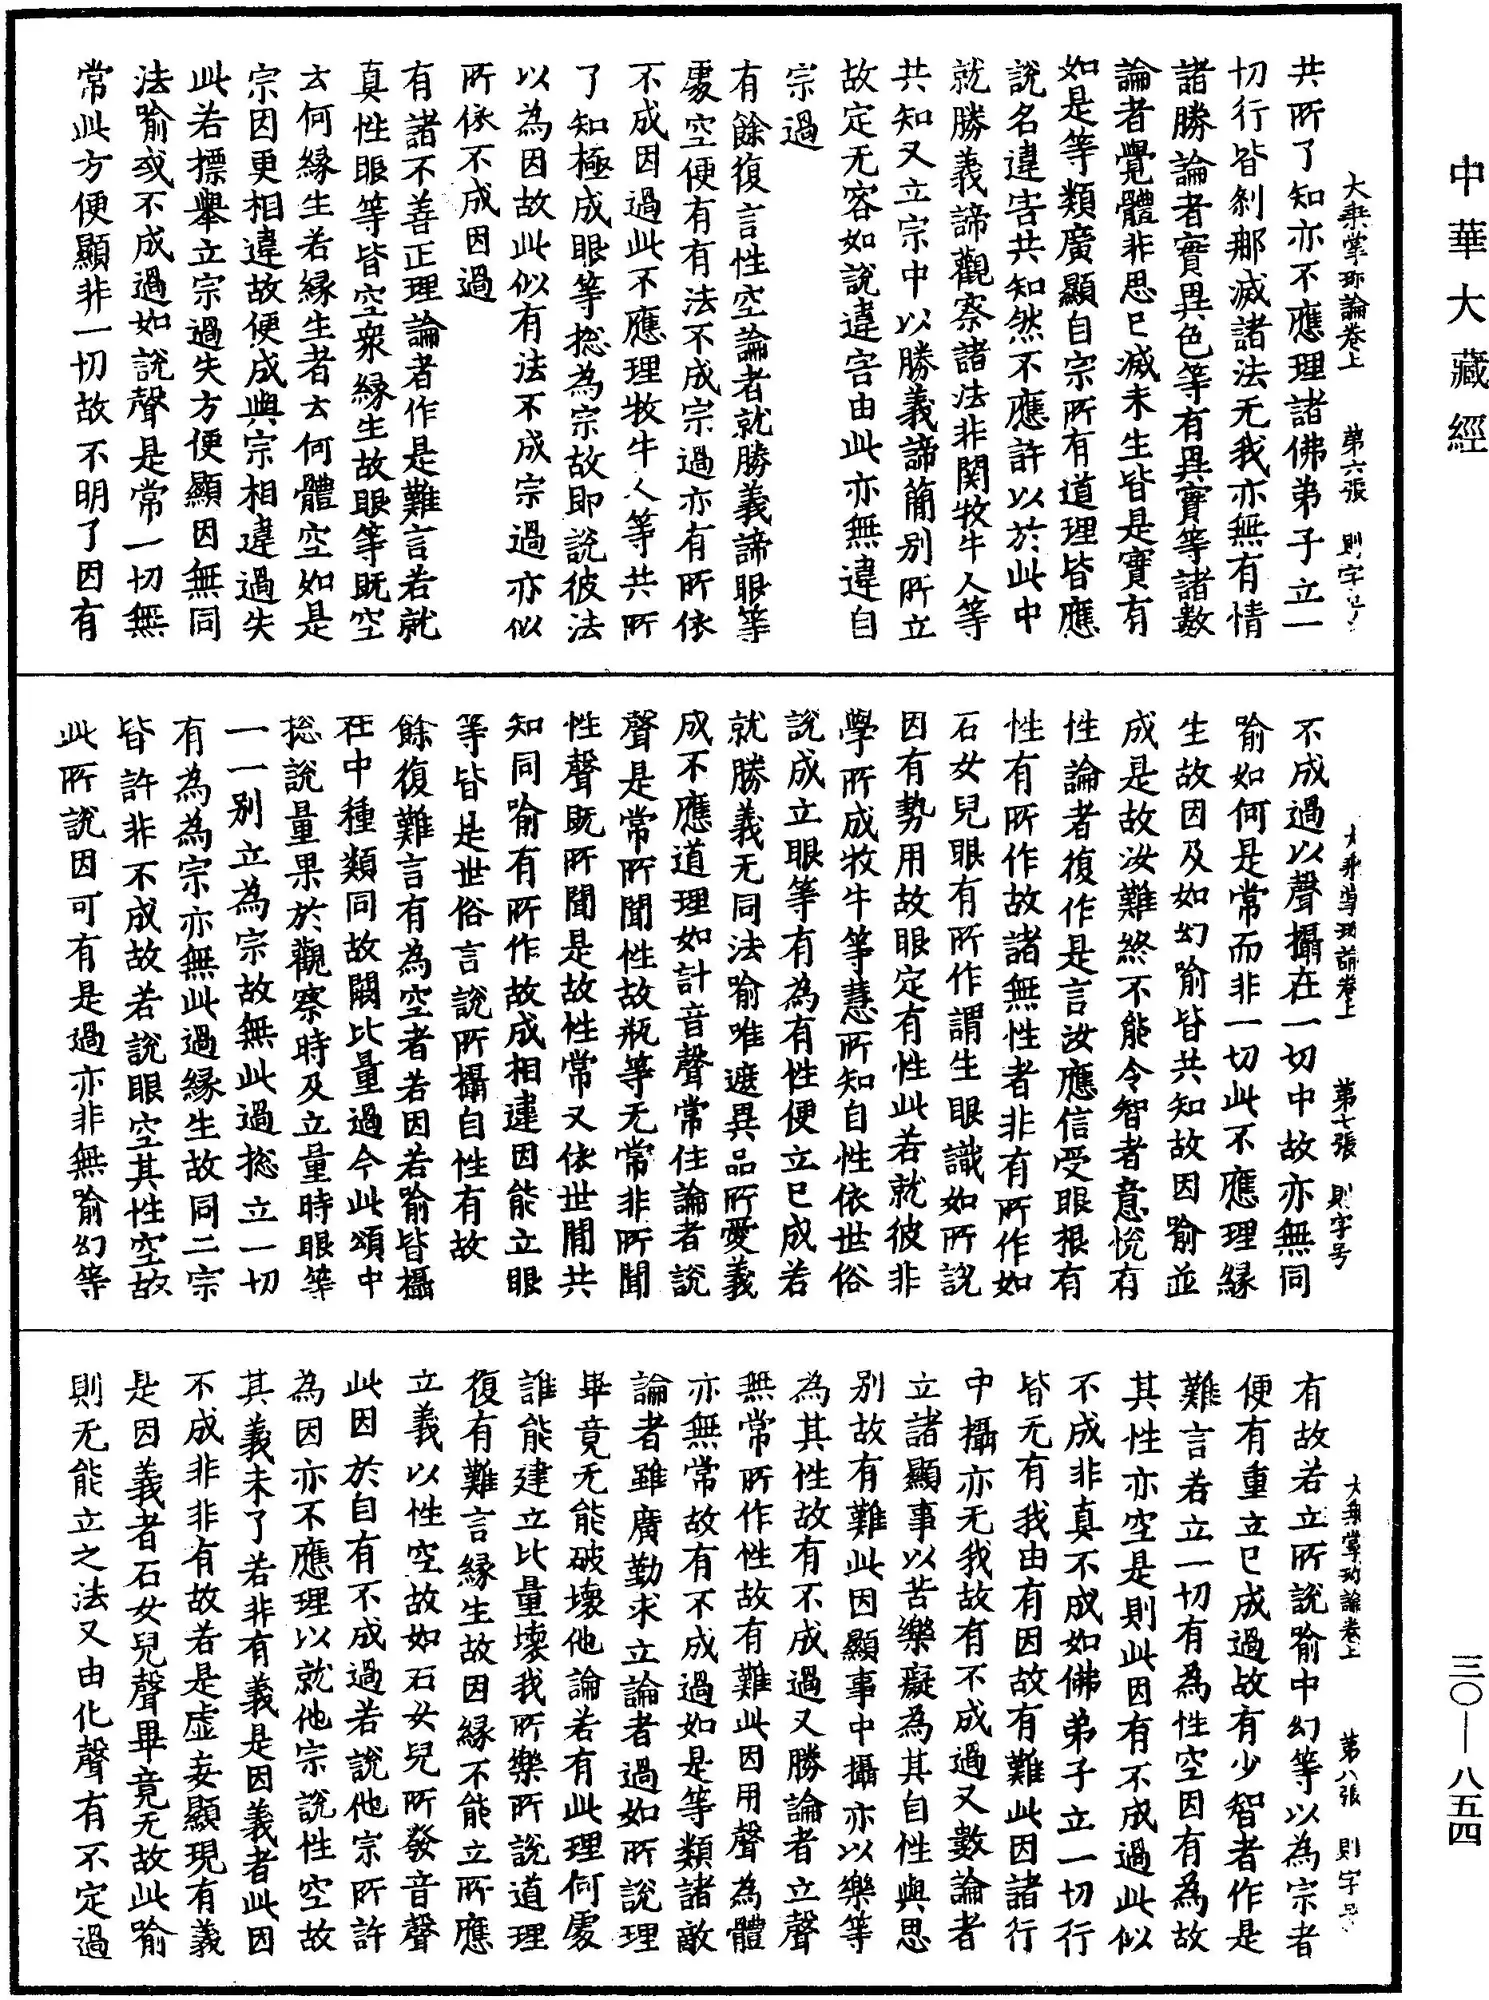 中華大藏經
大乘掌珍論卷上　第六張　則字号
共所了知亦不應理諸佛弟子立一
切行皆剎那滅諸法无我亦無有情
諸勝論者實異色等有異實等諸數
論者覺體非思已滅未生皆是實有
如是等類廣顯自宗所有道理皆應
說名違害共知然不應許以於此中
就勝義諦觀察諸法非関牧牛人等
共知又立宗中以勝義諦簡別所立
故定无容如說違害由此亦無違自
宗過
有餘復言性空論者就勝義諦眼等
處空便有有法不成宗過亦有所依
不成因過此不應理牧牛人等共所
了知極成眼等捴為宗故即說彼法
以為因故此似有法不成宗過亦似
所依不成因過
有諸不善正理論者作是難言若就
真性眼等皆空衆緣生故眼等既空
云何緣生若緣生者云何體空如是
宗因更相違故便成與宗相違過失
此若標舉立宗過失方便顯因無同
法喻或不成過如說聲是常一切無
常此方便顯非一切故不明了因有
大乘掌珍論卷上　第七張　則字号
不成過以聲攝在一切中故亦無同
喻如何是常而非一切此不應理緣
生故因及如幻喻皆共知故因喻並
成是故汝難終不能令智者意悅有
性論者復作是言汝應信受眼根有
性有所作故諸無性者非有所作如
石女兒眼有所作謂生眼識如所說
因有勢用故眼定有性此若就彼非
學所成牧牛等慧所知自性依世俗
說成立眼等有為有性便立已成若
就勝義无同法喻唯遮異品所愛義
成不應道理如計音聲常住論者說
聲是常所聞性故瓶等无常非所聞
性聲既所聞是故性常又依世間共
知同喻有所作故成相違因能立眼
等皆是世俗言說所攝自性有故
餘復難言有為空者若因若喻皆攝
在中種類同故闕比量過今此頌中
捴說量果於觀察時及立量時眼等
一一別立為宗故無此過捴立一切
有為為宗亦無此過緣生故同二宗
皆許非不成故若說眼空其性空故
此所說因可有是過亦非無喻幻等
大乘掌珍論卷上　第八張　則字号
有故若立所說喻中幻等以為宗者
便有重立已成過故有少智者作是
難言若立一切有為性空因有為故
其性亦空是則此因有不成過此似
不成非真不成如佛弟子立一切行
皆无有我由有因故有難此因諸行
中攝亦无我故有不成過又數論者
立諸顯事以苦樂癡為其自性與思
別故有難此因顯事中攝亦以樂等
為其性故有不成過又勝論者立聲
無常所作性故有難此因用聲為體
亦無常故有不成過如是等類諸敵
論者雖廣勤求立論者過如所說理
畢竟无能破壞他論若有此理何處
誰能建立比量壞我所樂所說道理
復有難言緣生故因緣不能立所應
立義以性空故如石女兒所發音聲
此因於自有不成過若說他宗所許
為因亦不應理以就他宗說性空故
其義未了若非有義是因義者此因
不成非非有故若是虛妄顯現有義
是因義者石女兒聲畢竟无故此喻
則无能立之法又由化聲有不定過
三〇—八五四